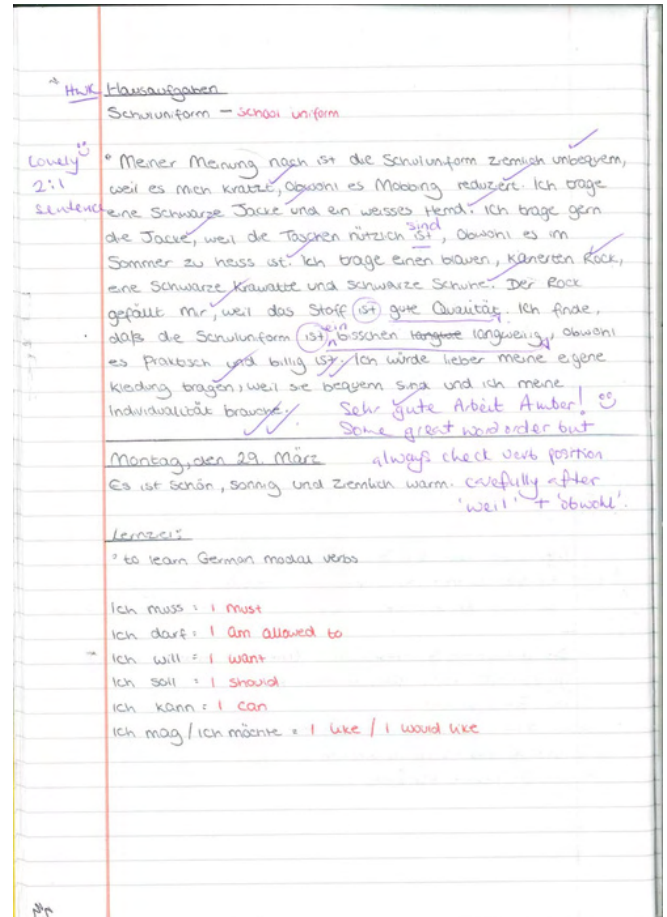 HWK Hausaufgaben
Schuluniform – school uniform
Lovely 2:1 sentence
° Meiner Meinung nach ist die Schuluniform ziemlich unbequem,
weil es mich kratzt, obwohl es Mobbing reduziert. Ich trage
eine Schwarze Jacke und ein weisses Hemd. Ich trage gern
sind
die Jacke, weil die Taschen nützlich ist, obwohl es im
Sommer zu heiss ist. Ich trage einen blauen, karierten Rock,
eine Schwarze Krawatte und schwarze Schuhe. Der Rock
gefällt mir, weil das Stoff ist gute Qualität. Ich finde,
ein
daß die Schuluniform ist bisschen langweilig, obwohl
es praktisch und billig ist. Ich würde lieber meine eigene
Kleidung tragen, weil sie bequem sind und ich meine
Individualität brauche.
Sehr gute Arbeit Amber!
Some great word order but
always check verb position
carefully after
'weil' + 'obwohl'.
Montag, den 29. März
Es ist schön, sonnig und ziemlich warm.
° to learn German modal verbs
Ich muss = I must
Ich darf = I am allowed to
Ich will = I want
Ich soll = I should
Ich kann = I can
Ich mag / ich möchte = I like / I would like